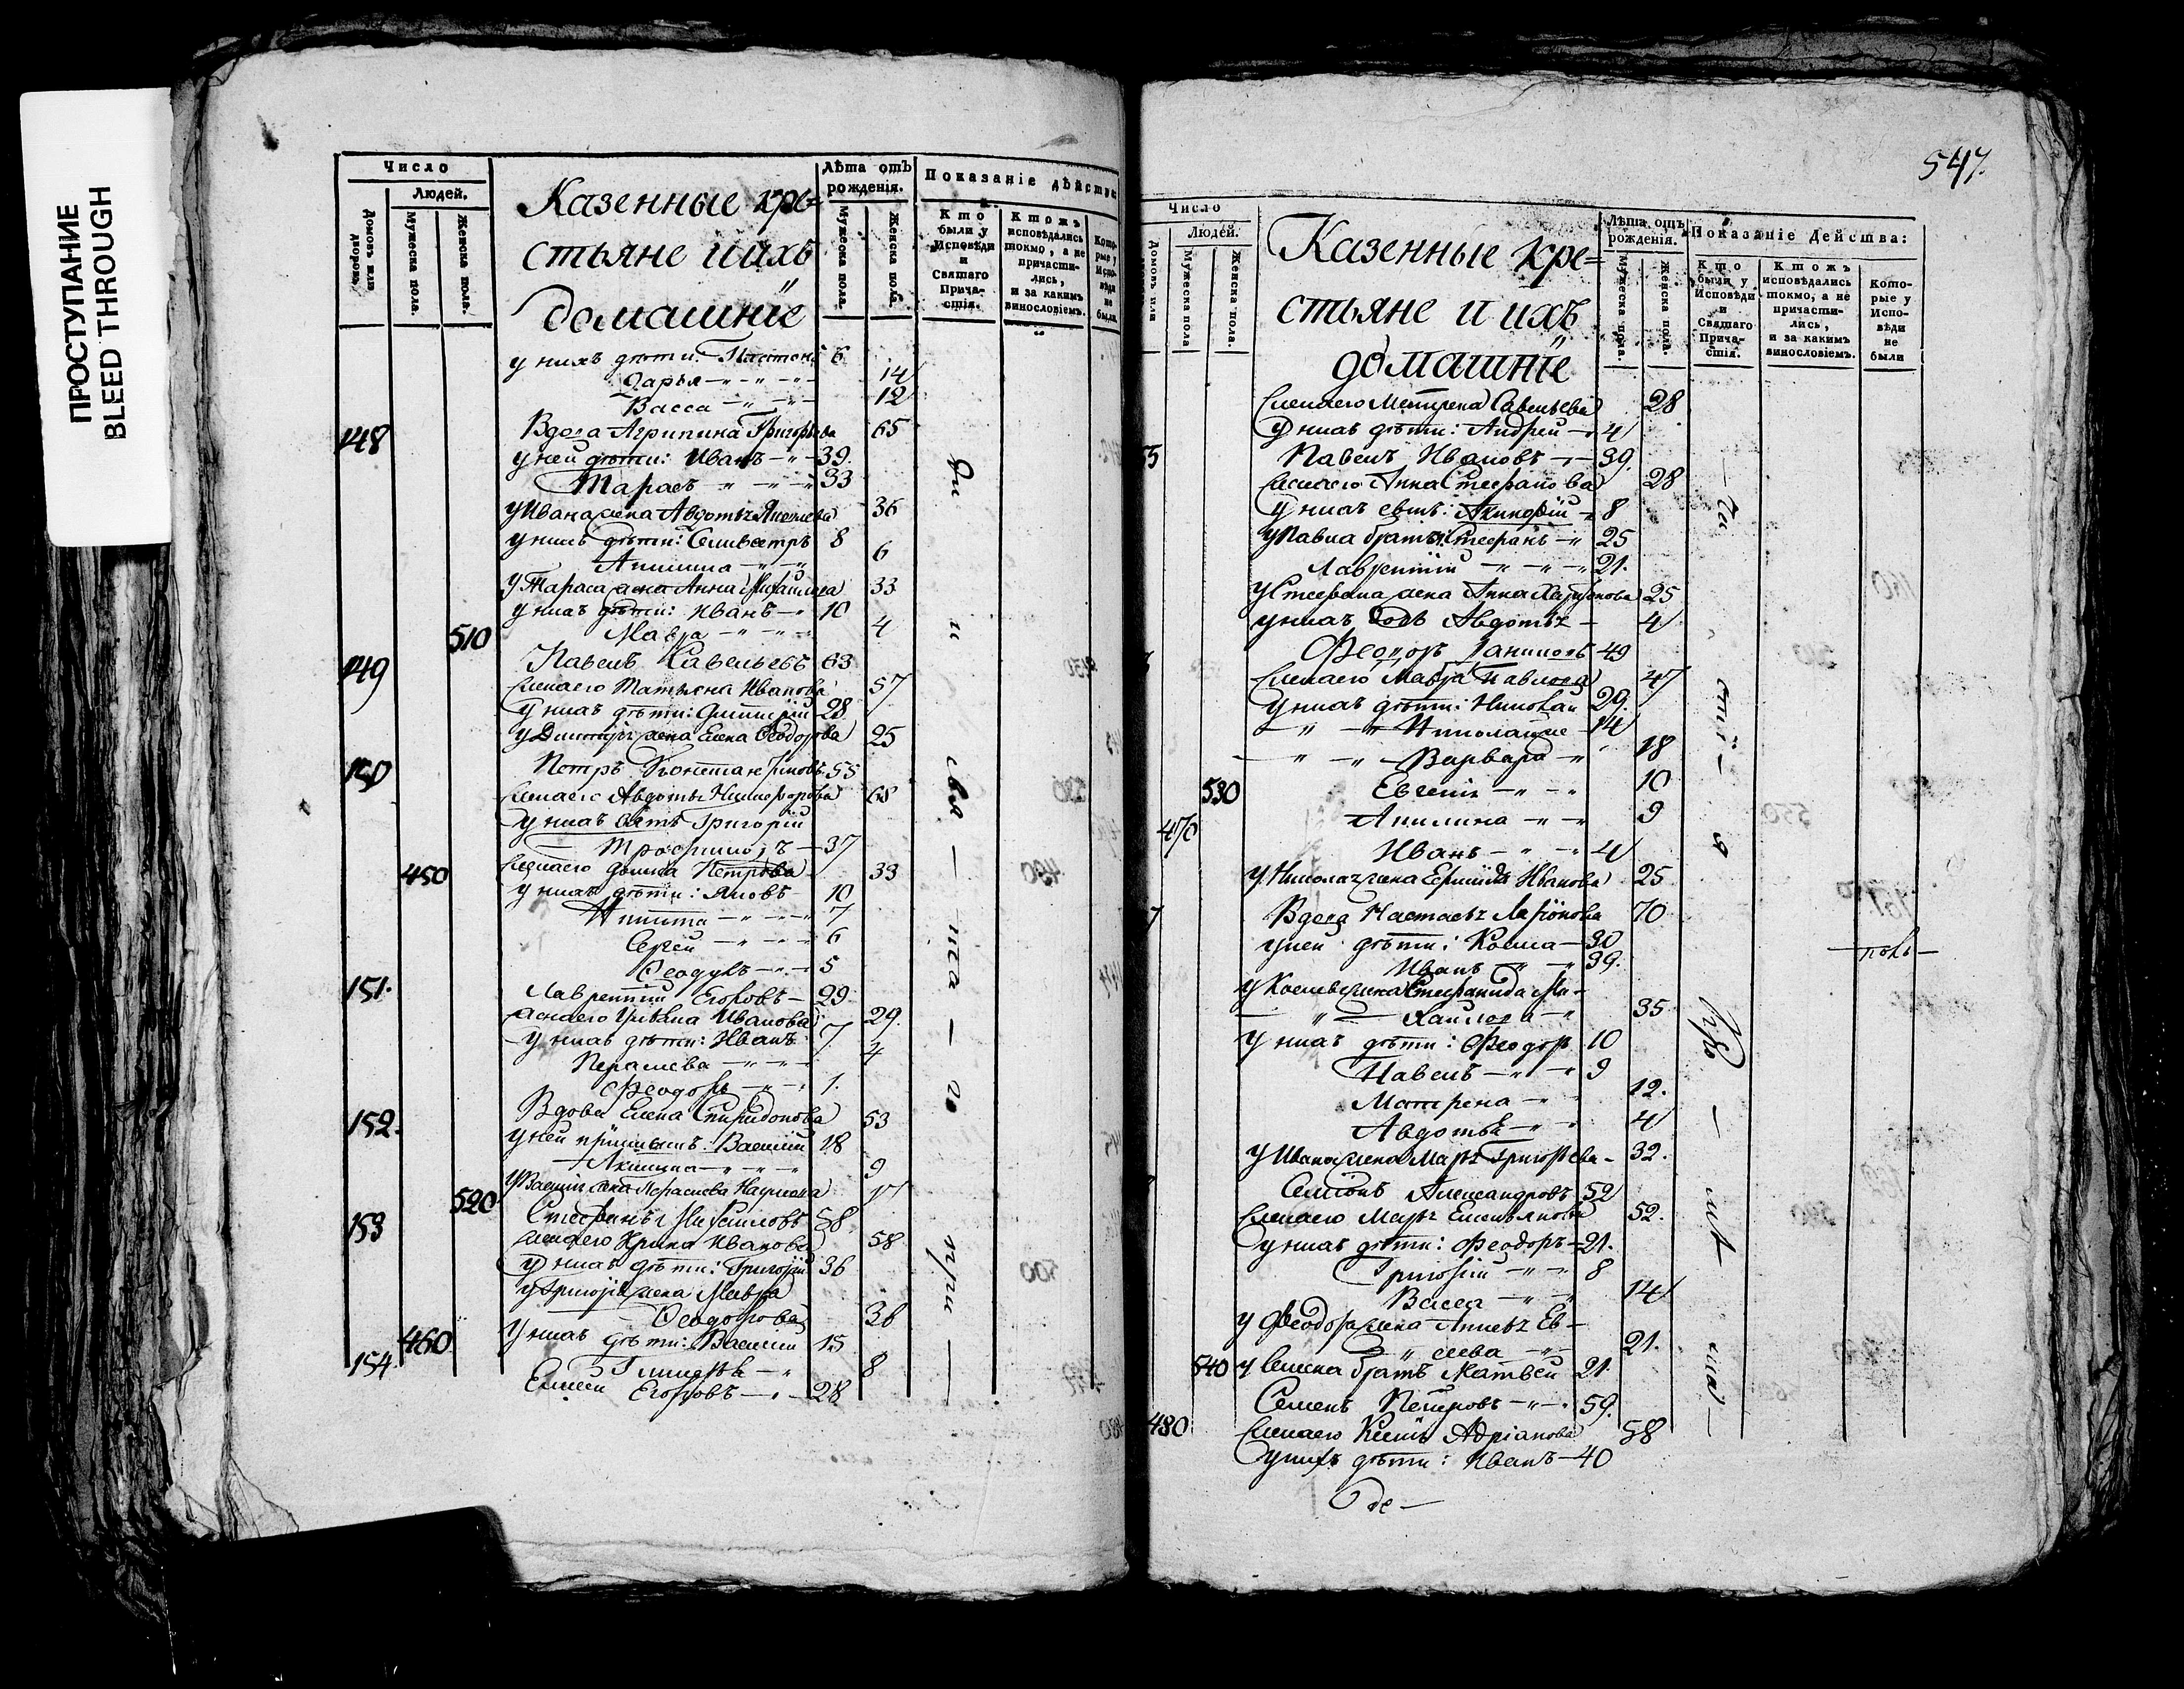 ПРОСТУПАНИЕ
BLEED THROUGH
Число
Людей.
Домовъ или дворовъ.
Мужеска пола.
Женска пола.
Казенные кре=
стьяне и ихъ
домашніе
Лѣта отъ рожденія.
Мужеска пола.
Женска пола.
Показаніе дѣйства
Кто были у Исповѣди и Святаго Прича-стія.
Ктожъ исповѣдались токмо, а не причасти-лись, и за какимъ винословіемъ.
Кото-рые у Испо-вѣди не были
у нихъ дѣти: 6
Дарья 14
Васса 12
148 Вдова Агрипина Григорьева 65
у ней дѣти: Иванъ 39.
Тарасъ 33
у Ивана жена Авдотья 36
у нихъ дѣти: Селивестръ 8
6
у Тараса жена Анна Михайлова 33
у нихъ дѣти: Иванъ 10
510 Мавра 4
149 Павелъ Савельевъ 63
жена его Татьяна Иванова 57
у нихъ дѣти: Димитрій 28
у Димитрія жена Елена Ѳеодорова 25
150 Петръ Константиновъ 55
жена его Авдотья Никифорова 68
у нихъ зять Григорій
Трофимовъ 37
450 жена его Домна Петрова 33
у нихъ дѣти: Яковъ 10
Никита 7
Сергей 6
Ѳеодулъ 5
151. Лаврентій Егоровъ 29
жена его Ульяна Иванова 29.
у нихъ дѣти: Иванъ 7
4
Ѳеодоръ 1.
152. Вдова Елена Спиридонова 53
у ней Василій 18
Акилина 9
520 у Василія жена Наумова 17
153 Стефанъ Михайловъ 58
жена его Ирина Иванова 58
у нихъ дѣти: Григорій 36
у Григорія жена Мавра
Ѳеодорова 36
460 у нихъ дѣти: Василій 15
Гликерія 8
154. Елисей Егоровъ 28
ди и свя — та — го при —
547.
Число
Людей.
Домовъ или
Мужеска пола
Женска пола.
Казенные кре=
стьяне и ихъ
домашніе
Лѣта отъ рожденія.
Мужеска пола.
Женска пола.
Показаніе Действа:
Кто были у Исповѣди и Святаго Прича-стія.
Ктожъ исповѣдались токмо, а не причасти-лись, и за какимъ винословіемъ.
Кото-рые у Испо-вѣди не были
жена его Матрена Савельева 28
у нихъ дѣти: Андрей 4
5 Павелъ Ивановъ 39.
жена его Анна Стефанова 28
у нихъ сынъ: 8
у Павла братья: Стефанъ 25
Лаврентій 21.
у Стефана жена Анна Харитонова 25
у нихъ дочь Авдотья 4
Ѳеодоръ Даниловъ 49
жена его Мавра Павлова 47
у нихъ дѣти: Николай 29.
Николай 14
Варвара 18
530 Евгенія 10
Акилина 9
470 Иванъ 4
у Николая жена Иванова 25
7 Вдова Настасья Ларіонова 70
у ней дѣти: Косма 30
Иванъ 39.
у Космы жена Стефанида Ми-
хайлова 35
у нихъ дѣти: Ѳеодоръ 10
Павелъ 9
Матрена 12.
Авдотья 4
у Ивана жена Марья Григорьева 32.
Семіонъ Александровъ 52
жена его Марья Емельянова 52.
у нихъ дѣти: Ѳеодоръ 21.
Григорій 8
Васса 14
у Ѳеодора жена Анисья Ев-
сеева 21.
540 у Семена братъ Матвей 21.
Семенъ Петровъ 59.
480 жена его Ксенія Адріанова 58
у нихъ дѣти: Иванъ 40